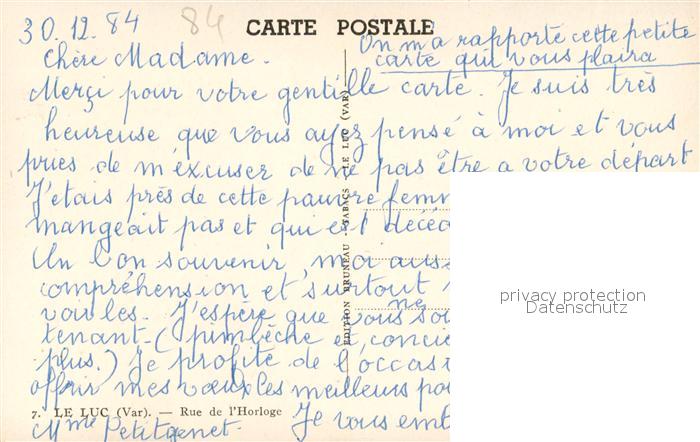 30.12.84 84
CARTE POSTALE
On m'a rapporté cette petite
carte qui vous plaira
Chère Madame.
Merçi pour votre gentille carte. Je suis très
heureuse que vous ayez pensé à moi et vous
pries de m'éxcuser de ne pas être a votre départ
J'etais près de cette pauvre femm
mangeait pas et qui est décéd
Un bon souvenir, moi auss
compréhension et surtout
voir les. J'espère que vous ne soi
tenant- (pimbêche et, concie
plus.) Je profite de l'occasi
offrir mes vœux les meilleurs po
7. — LE LUC (Var). — Rue de l'Horloge
Je vous emb
Mme Petitgenet.
EDITION BRUNEAU - TABACS - LE LUC (VAR)
privacy protection
Datenschutz